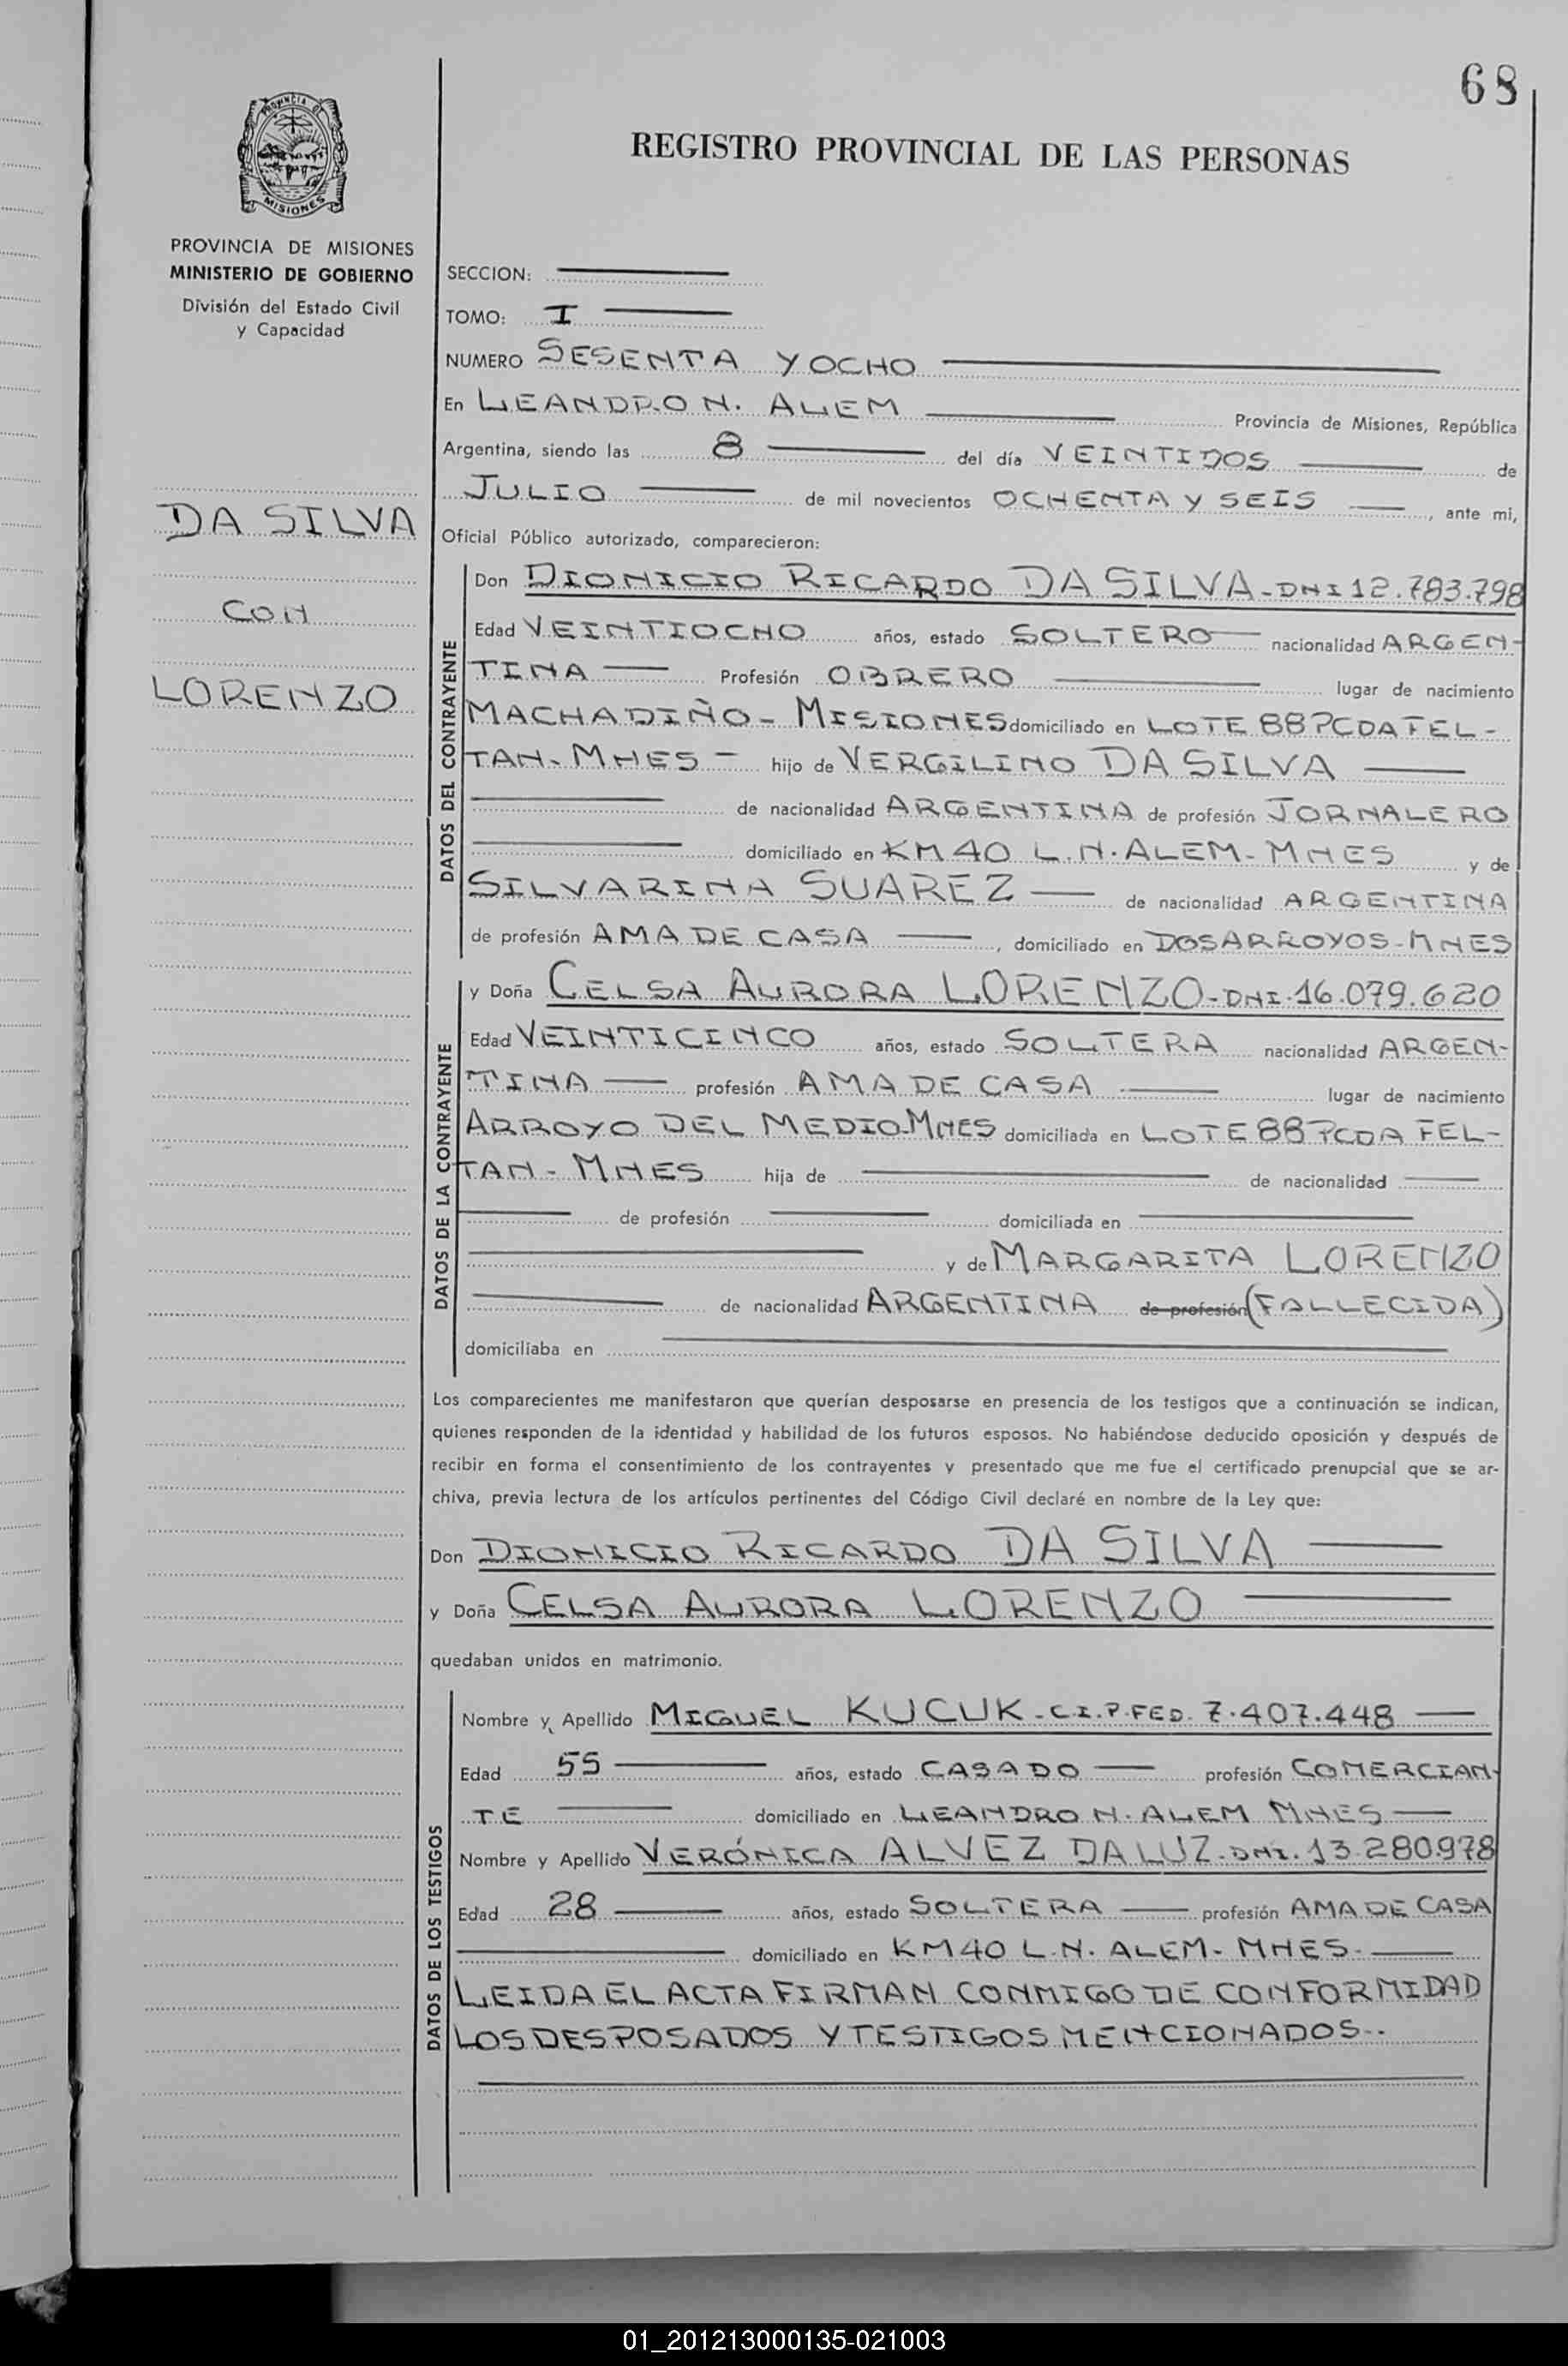 68
PROVINCIA DE
MISIONES
REGISTRO PROVINCIAL DE LAS PERSONAS
PROVINCIA DE MISIONES
MINISTERIO DE GOBIERNO
División del Estado Civil
y Capacidad
DA SILVA
CON
LORENZO
SECCION:
TOMO: I
NUMERO SESENTA Y OCHO
En LEANDRO N. ALEM Provincia de Misiones, República
Argentina, siendo las 8 del día VEINTIDOS de
JULIO de mil novecientos OCHENTA Y SEIS, ante mi,
Oficial Público autorizado, comparecieron:
DATOS DEL CONTRAYENTE
Don DIONICIO RICARDO DA SILVA - DNI 12.783.798
Edad VEINTIOCHO años, estado SOLTERO nacionalidad ARGEN-
TINA Profesión OBRERO lugar de nacimiento
MACHADIÑO - MISIONES domiciliado en LOTE 88 PCDA FEL-
TAN - MNES - hijo de VERGILINO DA SILVA
de nacionalidad ARGENTINA de profesión JORNALERO
domiciliado en KM 40 L.N. ALEM - MNES y de
SILVARINA SUAREZ de nacionalidad ARGENTINA
de profesión AMA DE CASA, domiciliado en DOS ARROYOS - MNES
DATOS DE LA CONTRAYENTE
y Doña CELSA AURORA LORENZO - DNI. 16.079.620
Edad VEINTICINCO años, estado SOLTERA nacionalidad ARGEN-
TINA profesión AMA DE CASA lugar de nacimiento
ARROYO DEL MEDIO - MNES domiciliada en LOTE 88 PCDA FEL-
TAN - MNES hija de de nacionalidad
de profesión domiciliada en
y de MARGARITA LORENZO
de nacionalidad ARGENTINA de profesión (FALLECIDA)
domiciliaba en
Los comparecientes me manifestaron que querían desposarse en presencia de los testigos que a continuación se indican,
quienes responden de la identidad y habilidad de los futuros esposos. No habiéndose deducido oposición y después de
recibir en forma el consentimiento de los contrayentes y presentado que me fue el certificado prenupcial que se ar-
chiva, previa lectura de los artículos pertinentes del Código Civil declaré en nombre de la Ley que:
Don DIONICIO RICARDO DA SILVA
y Doña CELSA AURORA LORENZO
quedaban unidos en matrimonio.
DATOS DE LOS TESTIGOS
Nombre y Apellido MIGUEL KUCUK - C.I.P.FED. 7.407.448
Edad 55 años, estado CASADO profesión COMERCIAN-
TE domiciliado en LEANDRO N. ALEM MNES
Nombre y Apellido VERÓNICA ALVEZ DA LUZ - DNI. 13.280.978
Edad 28 años, estado SOLTERA profesión AMA DE CASA
domiciliado en KM 40 L.N. ALEM - MNES.
LEIDA EL ACTA FIRMAN CONMIGO DE CONFORMIDAD
LOS DESPOSADOS Y TESTIGOS MENCIONADOS..
01_201213000135-021003